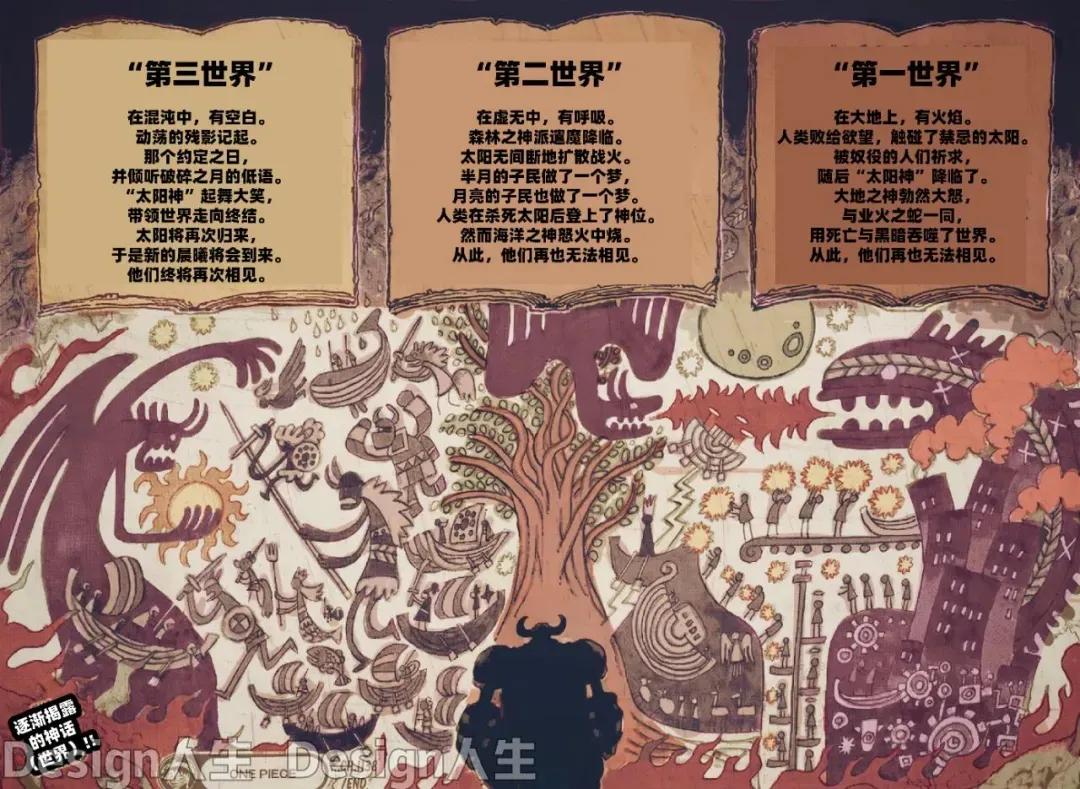 “第三世界”
在混沌中，有空白。
动荡的残影记起。
那个约定之日，
并倾听破碎之月的低语。
“太阳神”起舞大笑，
带领世界走向终结。
太阳将再次归来，
于是新的晨曦将会到来。
他们终将再次相见。
“第二世界”
在虚无中，有呼吸。
森林之神派遣魔降临。
太阳无间断地扩散战火。
半月的子民做了一个梦，
月亮的子民也做了一个梦。
人类在杀死太阳后登上了神位。
然而海洋之神怒火中烧。
从此，他们再也无法相见。
“第一世界”
在大地上，有火焰。
人类败给欲望，触碰了禁忌的太阳。
被奴役的人们祈求，
随后“太阳神”降临了。
大地之神勃然大怒，
与业火之蛇一同，
用死亡与黑暗吞噬了世界。
从此，他们再也无法相见。
逐渐揭露
的神话
（世界）!!
Design人生 Design人生
ONE PIECE
/END